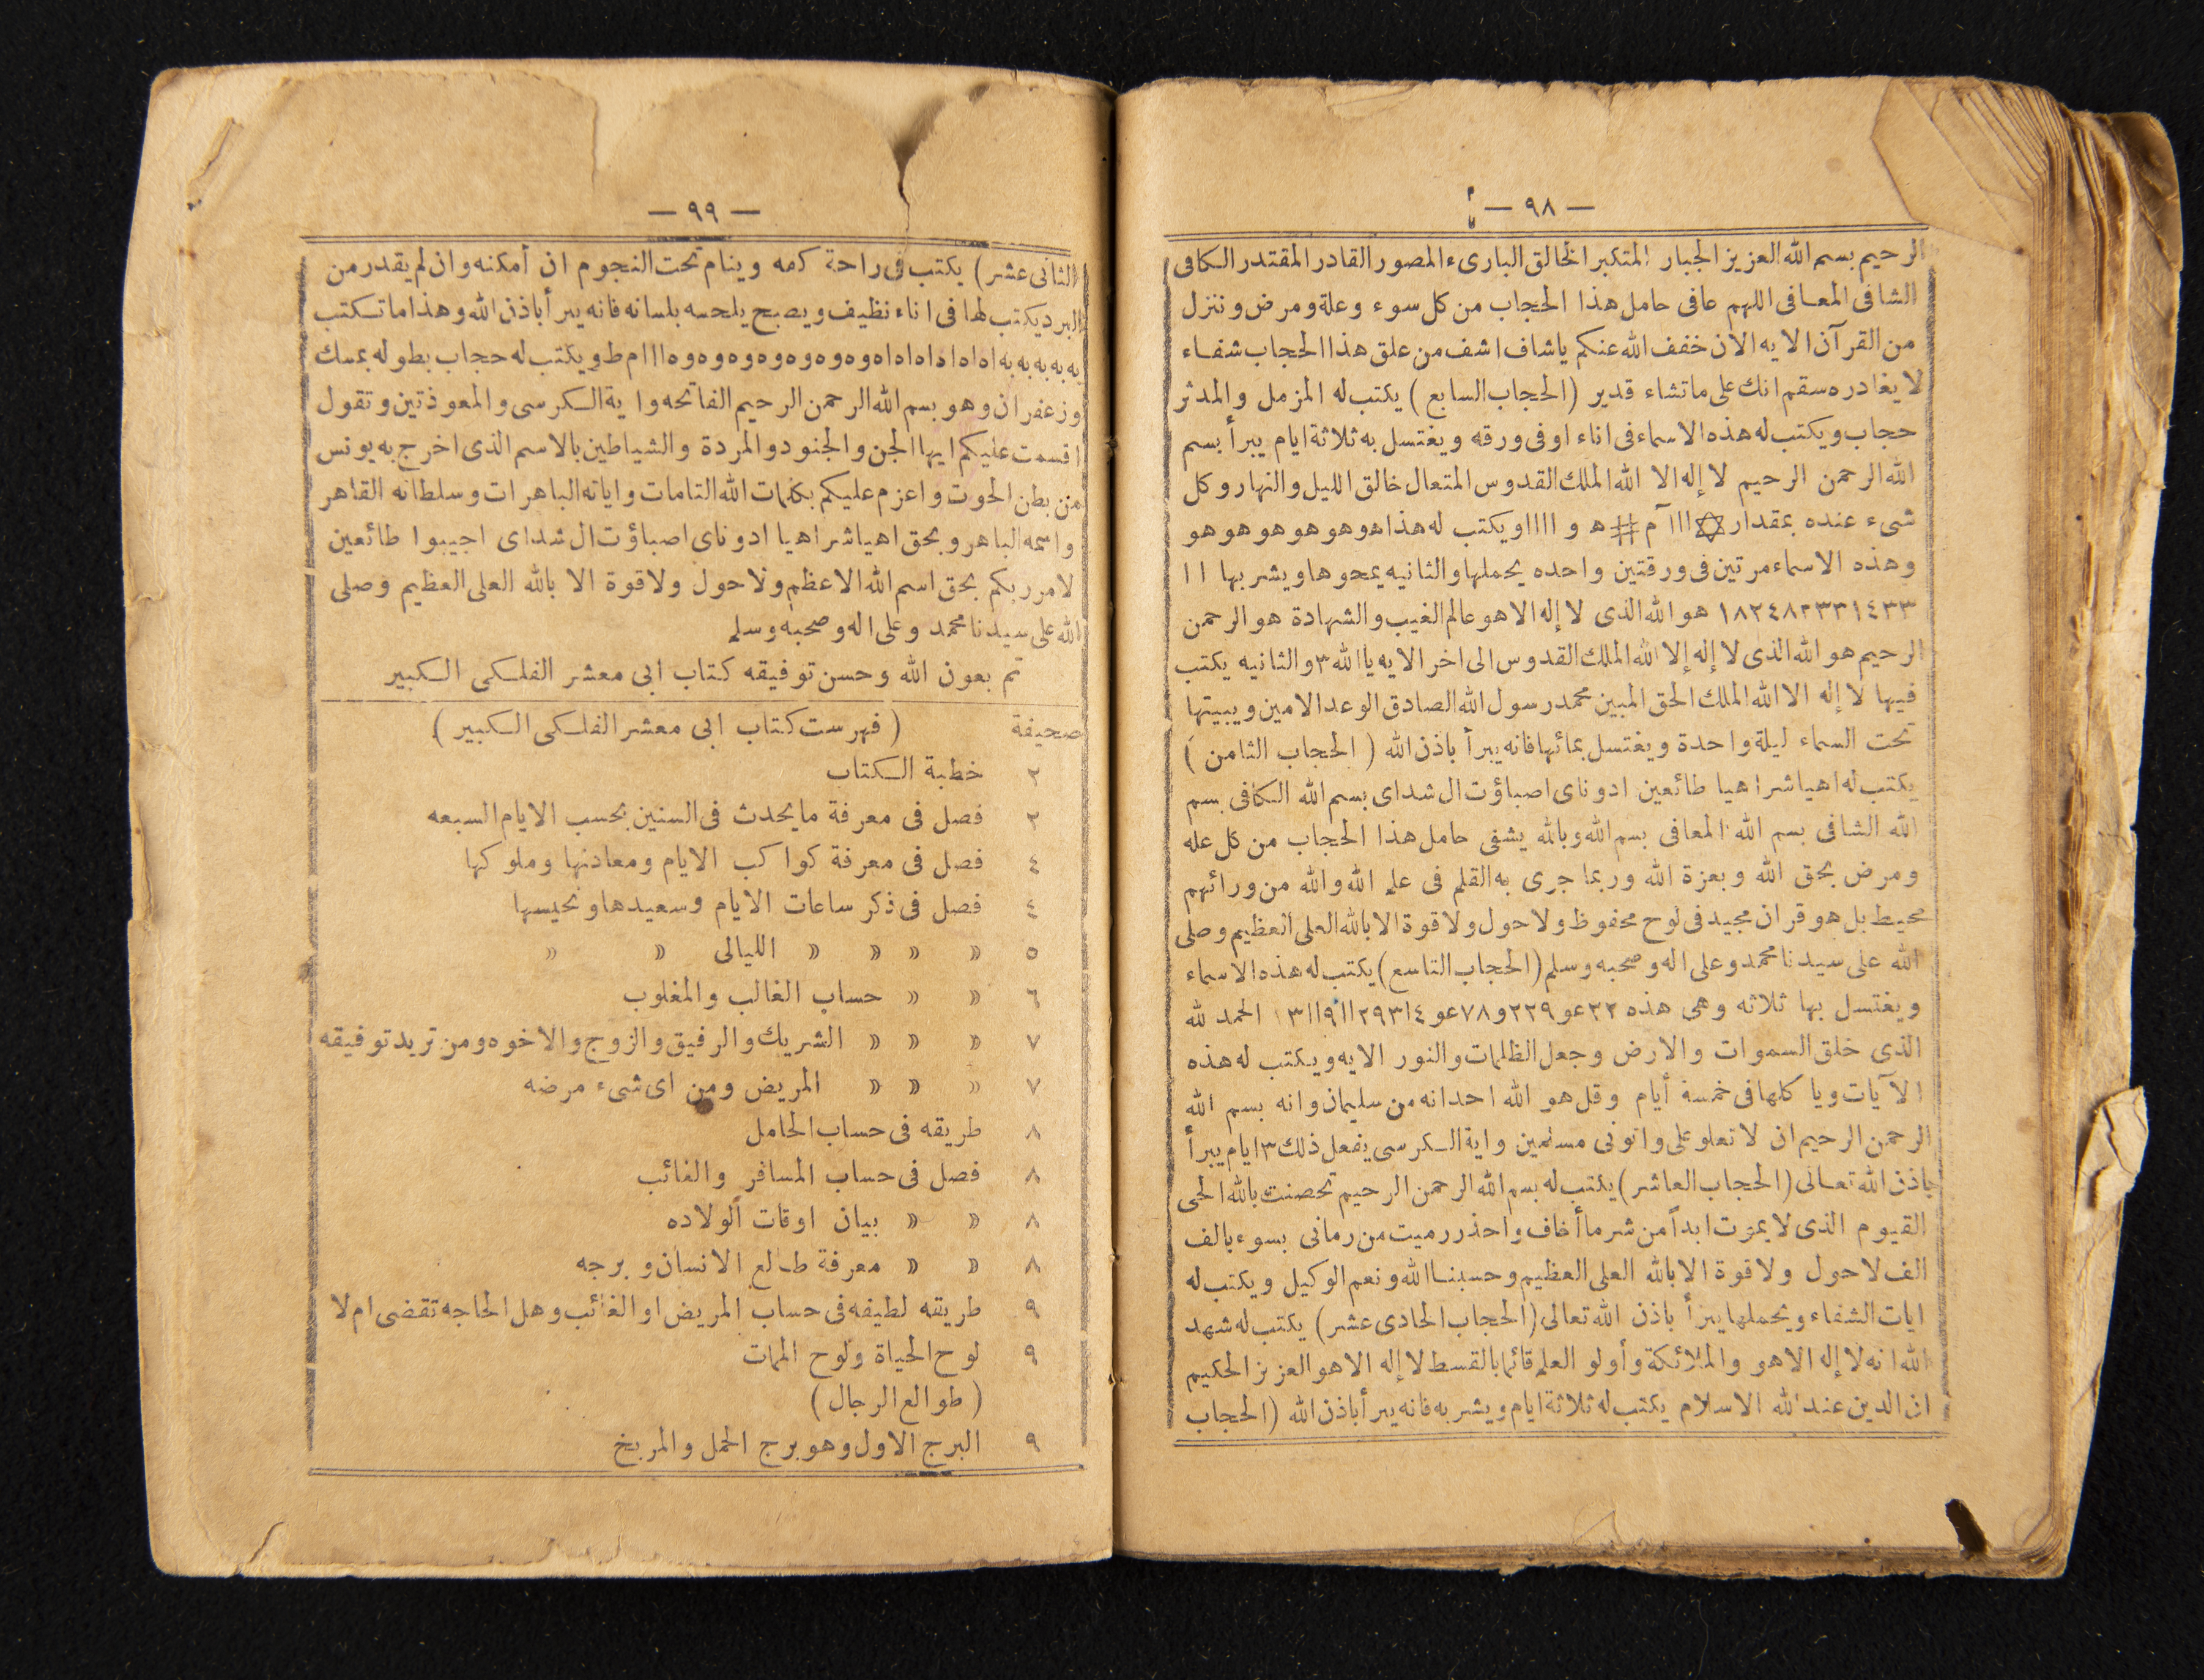 — ٩٨ —
الرحيم بسم الله العزيز الجبار المتكبر الخالق البارىء المصور القادر المقتدر الكافى
الشافى المعافى اللهم عافى حامل هذا الحجاب من كل سوء وعلة ومرض وننزل
من القرآن الايه الان خفف الله عنكم ياشاف اشف من علق هذا الحجاب شفاء
لا يغادره سقم انك على ماتشاء قدير (الحجاب السابع) يكتب له المزمل والمدثر
حجاب ويكتب له هذه الاسماء فى اناء او فى ورقه ويغتسل به ثلاثة ايام يبرأ بسم
الله الرحمن الرحيم لا إله الا الله الملك القدوس المتعال خالق الليل والنهار وكل
شىء عنده بمقدار ✡ ااا آ م # ه و اااا ويكتب له هذا هو هو هو هو هو هو
وهذه الاسماء مرتين فى ورقتين واحده يحملها والثانيه يمحوها ويشربها ١١
هو الله الذى لا إله الا هو عالم الغيب والشهادة هو الرحمن
الرحيم هو الله الذى لا إله إلا الله الملك القدوس الى اخر الايه يا الله ٣ والثانيه يكتب
فيها لا إله الا الله الملك الحق المبين محمد رسول الله الصادق الوعد الامين ويبيتها
تحت السماء ليلة واحدة ويغتسل بمائها فانه يبرأ باذن الله (الحجاب الثامن)
يكتب له اهيا شراهيا طائعين ادوناى اصباؤت ال شداى بسم الله الكافى بسم
الله الشافى بسم الله المعافى بسم الله وبالله يشفى حامل هذا الحجاب من كل عله
ومرض بحق الله وبعزة الله وربما جرى به القلم فى علم الله والله من ورائهم
محيط بل هو قران مجيد فى لوح محفوظ ولا حول ولا قوة الا بالله العلى العظيم وصلى
الله على سيدنا محمد وعلى اله وصحبه وسلم (الحجاب التاسع) يكتب له هذه الاسماء
ويغتسل بها ثلاثه وهى هذه الحمد لله
الذى خلق السموات والارض وجعل الظلمات والنور الايه ويكتب له هذه
الآيات ويا كلها فى خمسة أيام وقل هو الله احد انه من سليمان وانه بسم الله
الرحمن الرحيم ان لا تعلو على واتونى مسلمين واية الكرسى يفعل ذلك ٣ ايام يبرأ
باذن الله تعالى (الحجاب العاشر) يكتب له بسم الله الرحمن الرحيم تحصنت بالله الحى
القيوم الذى لا يموت ابداً من شر ما أخاف واحذر رميت من رمانى بسوء بالف
الف لا حول ولا قوة الا بالله العلى العظيم وحسبنا الله ونعم الوكيل ويكتب له
ايات الشفاء ويحملها يبرأ باذن الله تعالى (الحجاب الحادى عشر) يكتب له شهد
الله انه لا إله الا هو والملائكة وأولو العلم قائما بالقسط لا إله الا هو العزيز الحكيم
ان الدين عند الله الاسلام يكتب له ثلاثة ايام ويشربه فانه يبرأ باذن الله (الحجاب
— ٩٩ —
الثانى عشر) يكتب فى راحة كفه وينام تحت النجوم ان أمكنه وان لم يقدر من
البرد يكتب لها فى اناء نظيف ويصبح يلحسه بلسانه فانه يبرأ باذن الله وهذا ما تكتب
به به به به به اه اه اه اه اه اه وه وه وه وه وه وه ااا م ط ويكتب له حجاب بطوله بمسك
وزعفران وهو بسم الله الرحمن الرحيم الفاتحه واية الكرسى والمعوذتين وتقول
اقسمت عليكم ايها الجن والجنود والمردة والشياطين بالاسم الذى اخرج به يونس
من بطن الحوت واعزم عليكم بكلمات الله التامات واياته الباهرات وسلطانه القاهر
واسمه الباهر وبحق اهيا شراهيا ادوناى اصباؤت ال شداى اجيبوا طائعين
لامر ربكم بحق اسم الله الاعظم ولا حول ولا قوة الا بالله العلى العظيم وصلى
الله على سيدنا محمد وعلى اله وصحبه وسلم
تم بعون الله وحسن توفيقه كتاب ابى معشر الفلكى الكبير
صحيفة (فهرست كتاب ابى معشر الفلكى الكبير)
٢ خطبة الكتاب
٢ فصل فى معرفة ما يحدث فى السنين بحسب الايام السبعه
٤ فصل فى معرفة كواكب الايام ومعادنها وملوكها
٤ فصل فى ذكر ساعات الايام وسعيدها ونحيسها
٥ » » » » الليالى » »
٦ » » حساب الغالب والمغلوب
٧ » » » الشريك والرفيق والزوج والاخوه ومن تريد توفيقه
٧ » » » المريض ومن اى شىء مرضه
٨ طريقه فى حساب الحامل
٨ فصل فى حساب المسافر والغائب
٨ » » بيان اوقات الولاده
٨ » » معرفة طالع الانسان وبرجه
٩ طريقه لطيفه فى حساب المريض او الغائب وهل الحاجه تقضى ام لا
٩ لوح الحياة ولوح الممات
(طوالع الرجال)
٩ البرج الاول وهو برج الحمل والمريخ